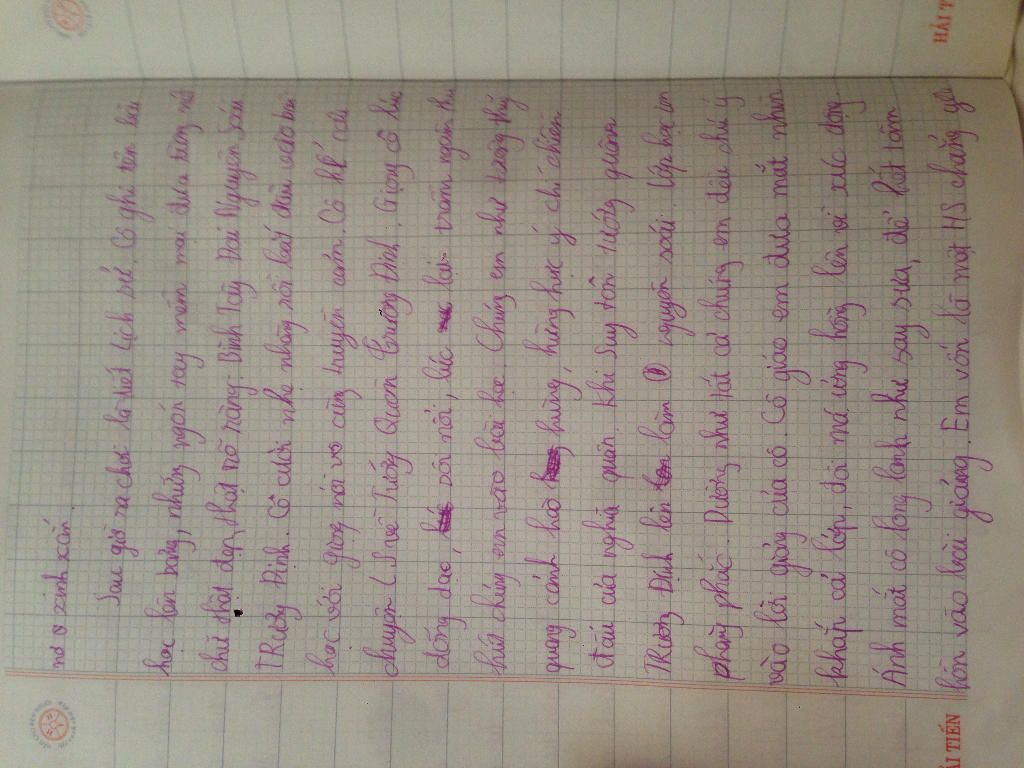 nơ xinh xắn.
Sau giờ ra chơi là tiết Lịch sử. Cô ghi tên bài
học lên bảng, những ngón tay mềm mại đưa từng nét
chữ thật đẹp, thật rõ ràng: Bình Tây Đại Nguyên Soái
TRương Định. Cô cười nhẹ nhàng rồi bắt đầu vào bài
học với giọng nói vô cùng truyền cảm. Cô kể câu
chuyện LS về Tướng Quân Trương Định. Giọng cô lúc
dõng dạc, sôi nổi, lúc lại trầm ngâm thu
hút chúng em vào bài học. Chúng em như trông thấy
quang cảnh hào hùng, hừng hực ý chí chiến
đấu của nghĩa quân khi suy tôn tướng quân
TRương Định lên làm nguyên soái. Lớp học im
phăng phắc. Dường như tất cả chúng em đều chú ý
vào lời giảng của cô. Cô giáo em đưa mắt nhìn
khắp cả lớp, đôi má ửng hồng lên vì xúc động.
Ánh mắt cô long lanh như say sưa, để hết tâm
hồn vào bài giảng. Em vốn là một HS chẳng yêu
HẢI T
ẢI TIẾN